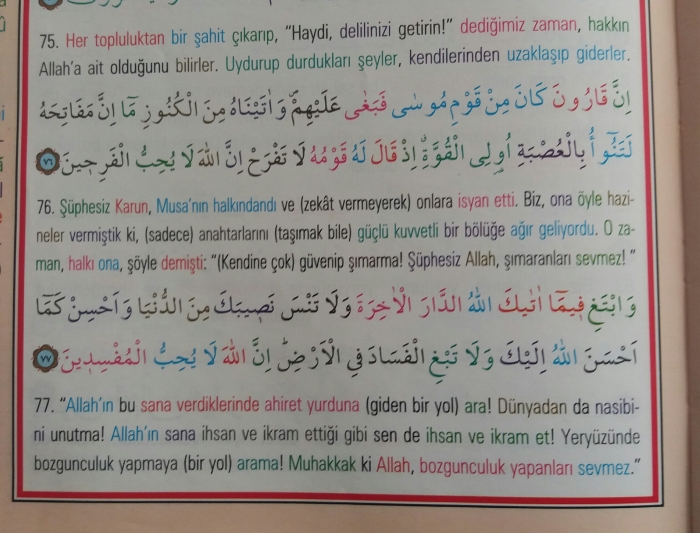 75. Her topluluktan bir şahit çıkarıp, "Haydi, delilinizi getirin!" dediğimiz zaman, hakkın
Allah'a ait olduğunu bilirler. Uydurup durdukları şeyler, kendilerinden uzaklaşıp giderler.
اِنَّ قَارُونَ كَانَ مِنْ قَوْمِ مُوسٰى فَبَغٰى عَلَيْهِمْ وَاٰتَيْنَاهُ مِنَ الْكُنُوزِ مَٓا اِنَّ مَفَاتِحَهُ
لَتَنُٓواُ بِالْعُصْبَةِ اُولِى الْقُوَّةِ اِذْ قَالَ لَهُ قَوْمُهُ لَا تَفْرَحْ اِنَّ اللّٰهَ لَا يُحِبُّ الْفَرِحٖينَ ٧٦
76. Şüphesiz Karun, Musa'nın halkındandı ve (zekât vermeyerek) onlara isyan etti. Biz, ona öyle hazi-
neler vermiştik ki, (sadece) anahtarlarını (taşımak bile) güçlü kuvvetli bir bölüğe ağır geliyordu. O za-
man, halkı ona, şöyle demişti: "(Kendine çok) güvenip şımarma! Şüphesiz Allah, şımaranları sevmez! "
وَابْتَغِ فٖيمَٓا اٰتٰيكَ اللّٰهُ الدَّارَ الْاٰخِرَةَ وَلَا تَنْسَ نَصٖيبَكَ مِنَ الدُّنْيَا وَاَحْسِنْ كَمَٓا
اَحْسَنَ اللّٰهُ اِلَيْكَ وَلَا تَبْغِ الْفَسَادَ فِي الْاَرْضِ اِنَّ اللّٰهَ لَا يُحِبُّ الْمُفْسِدٖينَ ٧٧
77. "Allah'ın bu sana verdiklerinde ahiret yurduna (giden bir yol) ara! Dünyadan da nasibi-
ni unutma! Allah'ın sana ihsan ve ikram ettiği gibi sen de ihsan ve ikram et! Yeryüzünde
bozgunculuk yapmaya (bir yol) arama! Muhakkak ki Allah, bozgunculuk yapanları sevmez."